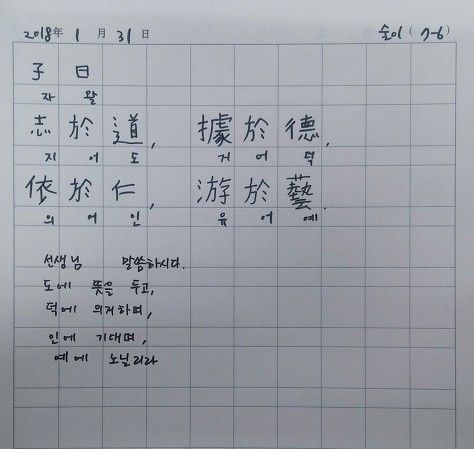 2018年 1月 31日 술이 (7-6)
子曰
자왈
志於道, 據於德,
지어도 거어덕
依於仁, 游於藝.
의어인 유어예
선생님 말씀하시다.
도에 뜻을 두고,
덕에 의거하며,
인에 기대며,
예에 노닐리라